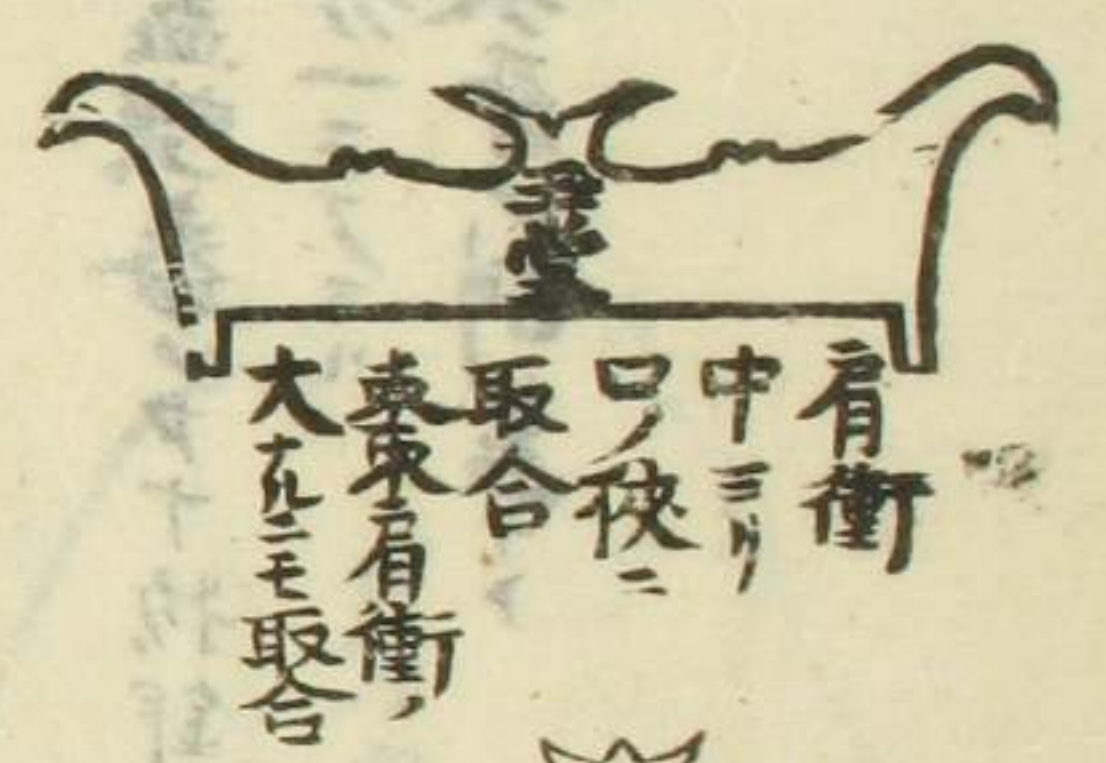 肩衝
中ヨリ
口ノ狭ニ
取合
棗肩衝ノ
大ナルニモ取合